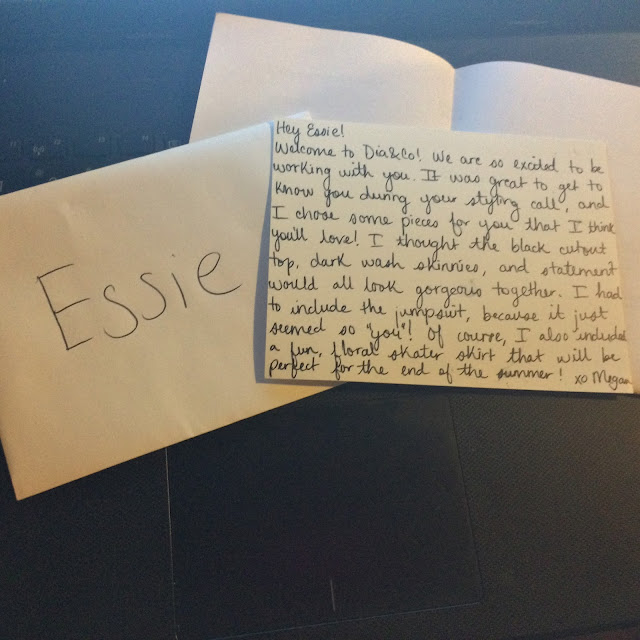 Essie
Hey Essie!
Welcome to Dia&Co! We are so excited to be
working with you. It was great to get to
know you during your styling call, and
I chose some pieces for you that I think
you'll love! I thought the black cutout
top, dark wash skinnies, and statement
would all look gorgeous together. I had
to include the jumpsuit, because it just
seemed so "you"! Of course, I also included
a fun, floral skater skirt that will be
perfect for the end of the summer! xo Megan